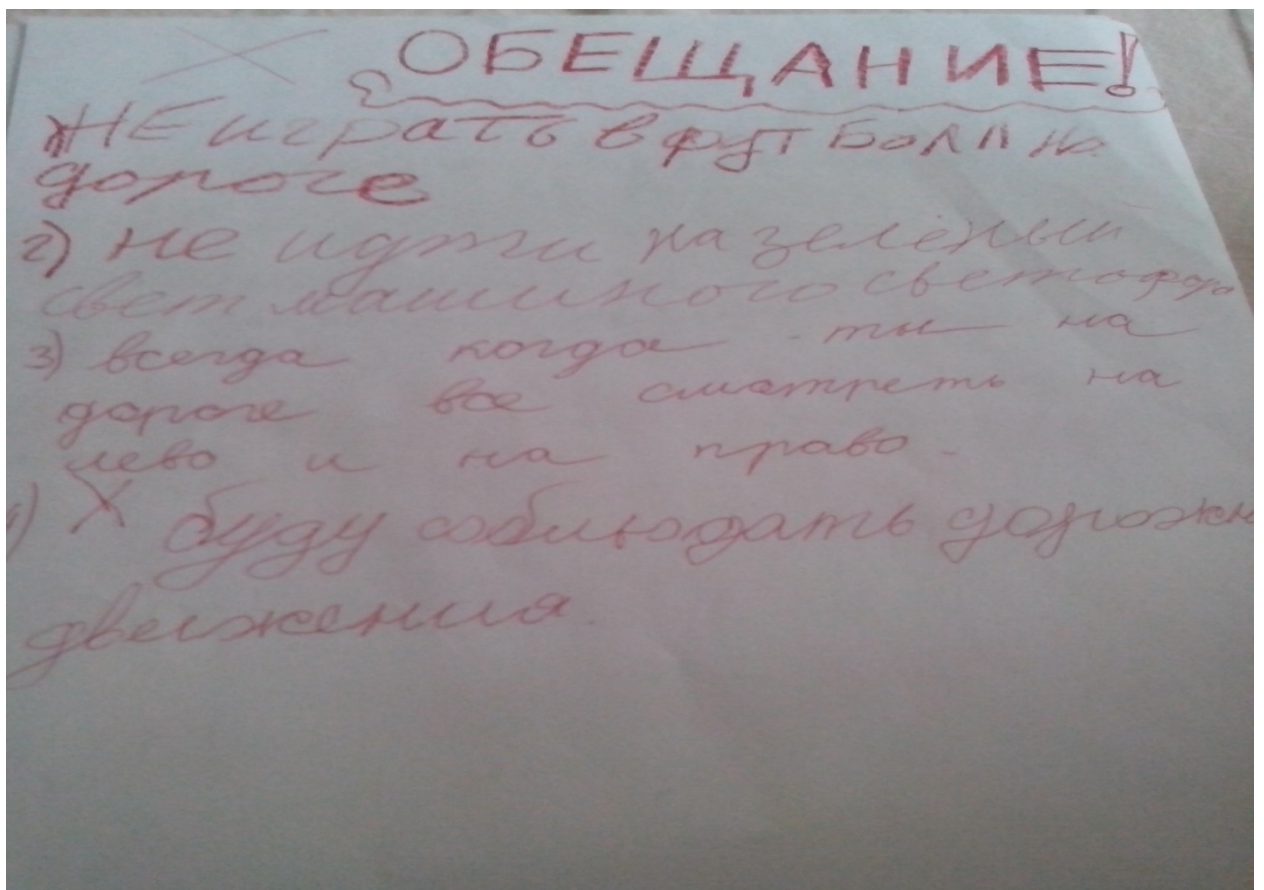 ОБЕЩАНИЕ!
НЕ играть в футболл на
дороге
2) не идти на зелёный
свет машиного светофора
3) всегда когда ты на
дороге все сматреть на
лево и на право.
Х буду соблюдать
движения.